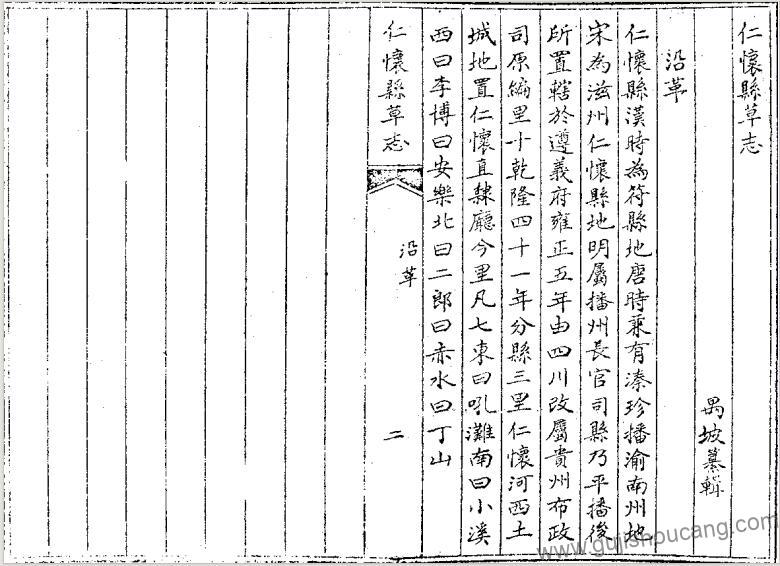 仁懷縣草志
禺坡纂輯
沿革
仁懷縣漢時為符縣地唐時兼有溱珍播渝南州地
宋為滋州仁懷縣地明屬播州長官司縣乃平播後
所置轄於遵義府雍正五年由四川改屬貴州布政
司原編里十乾隆四十一年分縣三里仁懷河西土
城地置仁懷直隸廳今里凡七東曰吼灘南曰小溪
西曰李博曰安樂北曰二郎曰赤水曰丁山
仁懷縣草志
沿革
二
www.gujishoucang.com